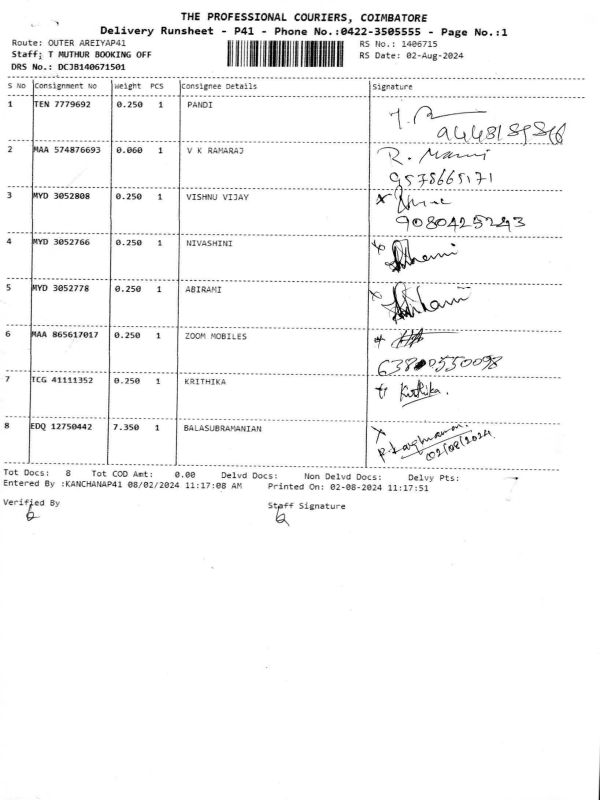 THE PROFESSIONAL COURIERS, COIMBATORE
Delivery Runsheet - P41 - Phone No.:0422-3505555 - Page No.:1
Route: OUTER AREIYAP41 RS No.: 1406715
Staff: T MUTHUR BOOKING OFF RS Date: 02-Aug-2024
DRS No.: DCJB140671501
S No Consignment No Weight PCS Consignee Details Signature
1 TEN 7779692 0.250 1 PANDI
2 MAA 574876693 0.060 1 V K RAMARAJ R. Mani
9578665171
3 MYD 3052808 0.250 1 VISHNU VIJAY
9080425243
4 MYD 3052766 0.250 1 NIVASHINI
5 MYD 3052778 0.250 1 ABIRAMI
6 MAA 865617017 0.250 1 ZOOM MOBILES
7 TCG 41111352 0.250 1 KRITHIKA Krithika.
8 EDQ 12750442 7.350 1 BALASUBRAMANIAN
02/08/2024
Tot Docs: 8 Tot COD Amt: 0.00 Delvd Docs: Non Delvd Docs: Delvy Pts:
Entered By :KANCHANAP41 08/02/2024 11:17:08 AM Printed On: 02-08-2024 11:17:51
Verified By Staff Signature